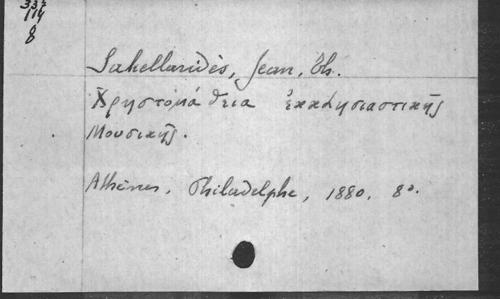 114
8
Sakellaridès, Jean, Th.
Χρηστομάθεια ἐκκλησιαστικῆς
Μουσικῆς.
Athènes, Philadelphe, 1880. 8º.